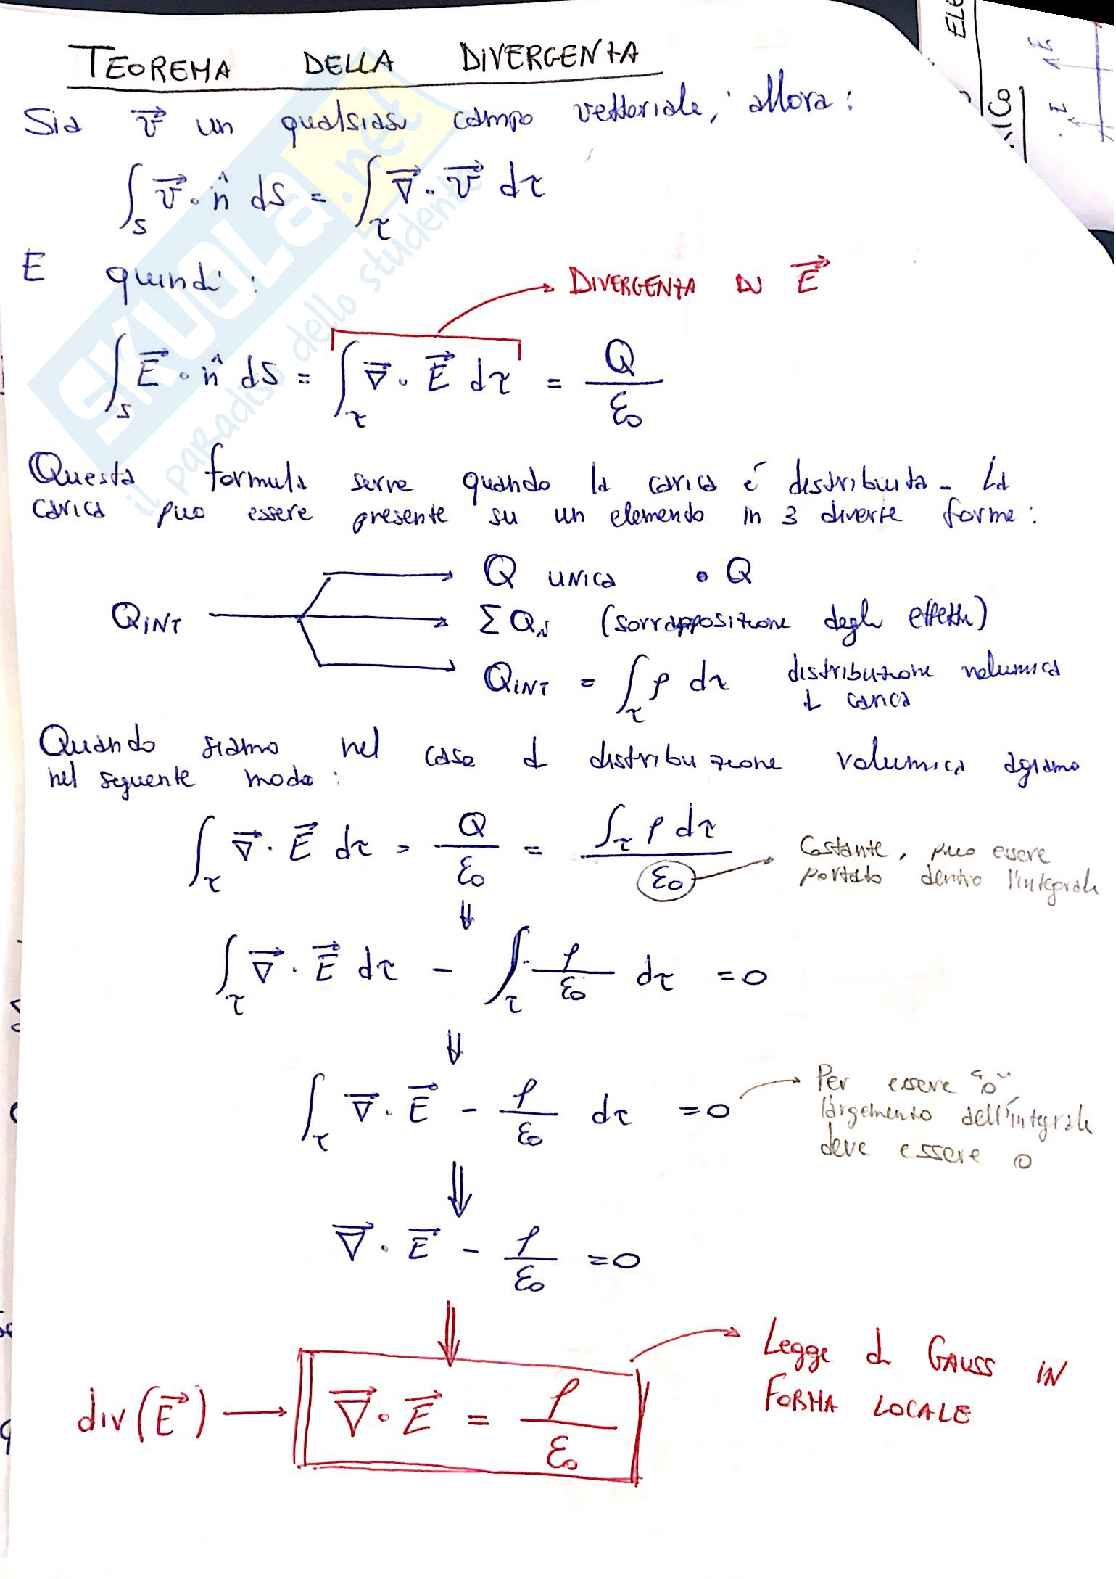 TEOREMA DELLA DIVERGENZA
Sia v⃗ un qualsiasi campo vettoriale, allora:
∫_S v⃗ · n̂ dS = ∫_τ ∇⃗ · v⃗ dτ
E quindi:
DIVERGENZA DI E⃗
∫_S E⃗ · n̂ dS = ∫_τ ∇⃗ · E⃗ dτ = Q/ε₀
Questa formula serve quando la carica é distribuita. La
carica puo essere presente su un elemento in 3 diverse forme:
Q unica • Q
Q_INT ΣQ_N (sovrapposizione degli effetti)
Q_INT = ∫_τ ρ dτ distribuzione volumica
di carica
Quando siamo nel caso di distribuzione volumica agiamo
nel seguente modo:
∫_τ ∇⃗ · E⃗ dτ = Q/ε₀ = ∫_τ ρ dτ / ε₀ → Costante, puo essere
portato dentro l'integrale
⇓
∫_τ ∇⃗ · E⃗ dτ - ∫_τ ρ/ε₀ dτ = 0
⇓
∫_τ ∇⃗ · E⃗ - ρ/ε₀ dτ = 0 → Per essere "0"
l'argomento dell'integrale
deve essere 0
⇓
∇⃗ · E⃗ - ρ/ε₀ = 0
⇓
Legge di GAUSS IN
FORMA LOCALE
div(E⃗) → ∇⃗ · E⃗ = ρ/ε₀
SKUOLA.net
il paradiso dello studente